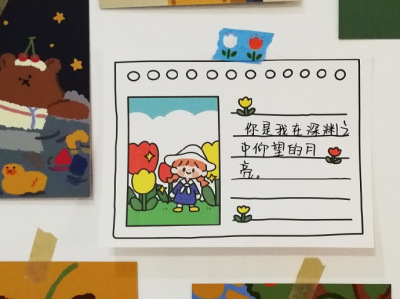 你是我在深渊之
中仰望的月
亮。